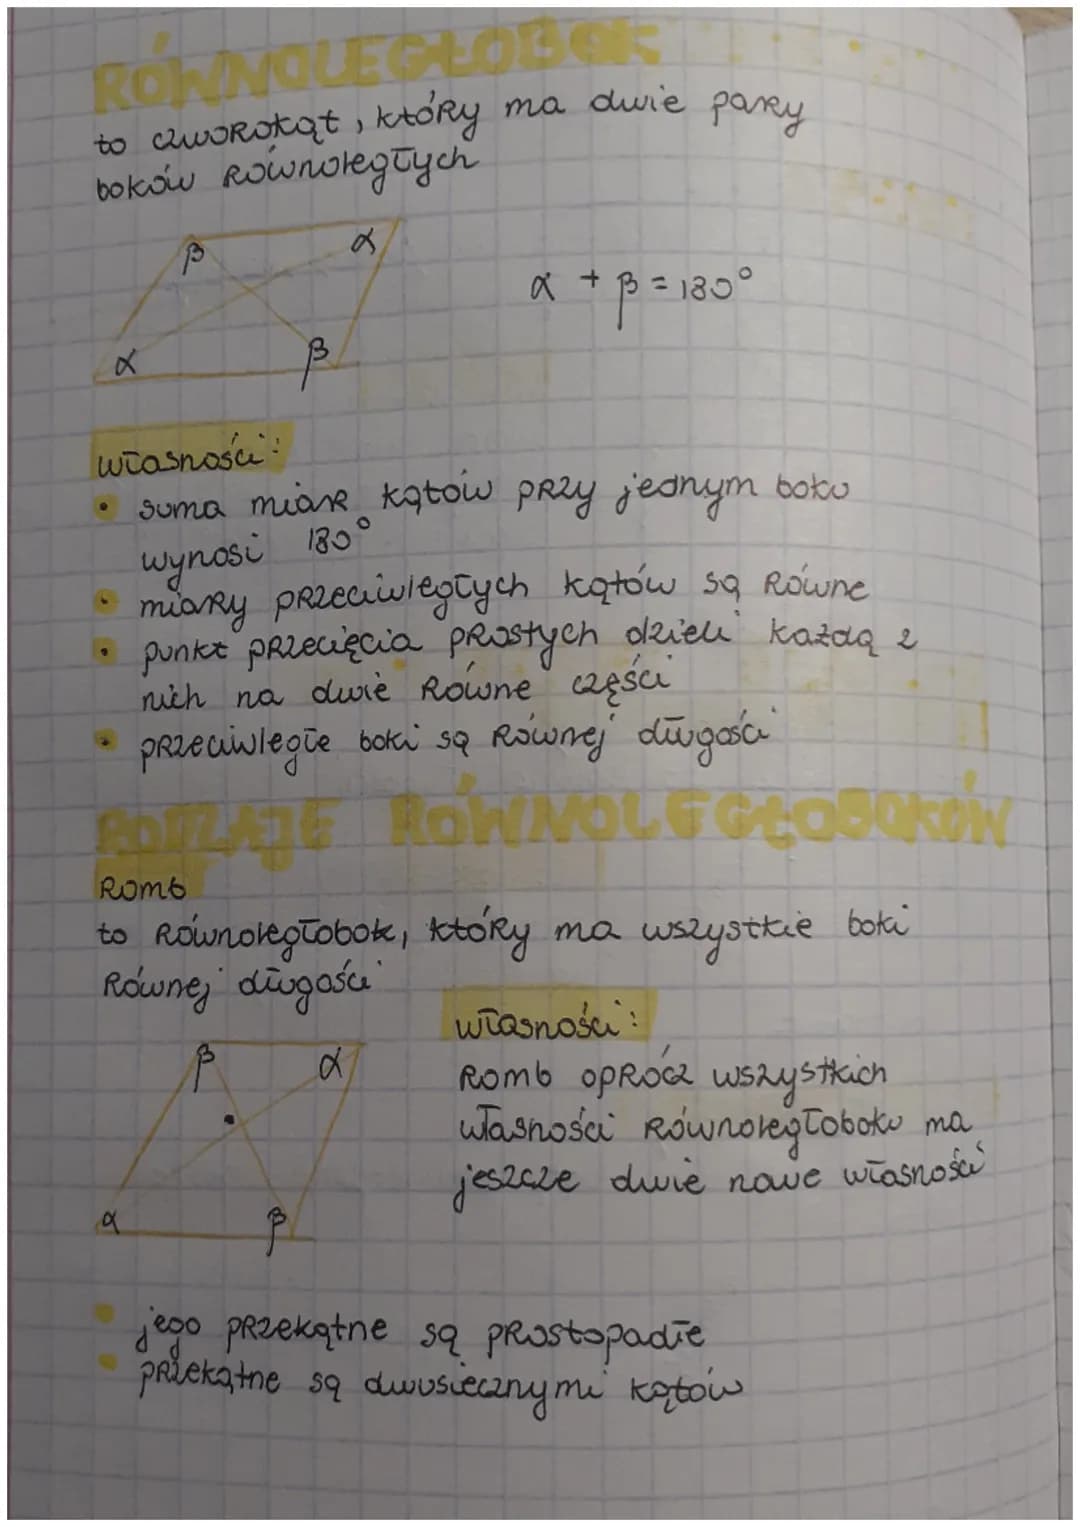 RÓWNOLEGŁOBOK
to czworokąt, który ma dwie pary
boków równoległych
β α
α β
α + β = 180°
własności:
• suma miar kątów przy jednym boku
wynosi 180°
• miary przeciwległych kątów są równe
• punkt przecięcia prostych dzieli każdą z
nich na dwie równe części
• przeciwległe boki są równej długości
RODZAJE RÓWNOLEGŁOBOKÓW
Romb
to równoległobok, który ma wszystkie boki
równej długości
β α
α β
własności:
Romb oprócz wszystkich
własności równoległoboku ma
jeszcze dwie nowe własności
• jego przekątne są prostopadłe
• przekątne są dwusiecznymi kątów